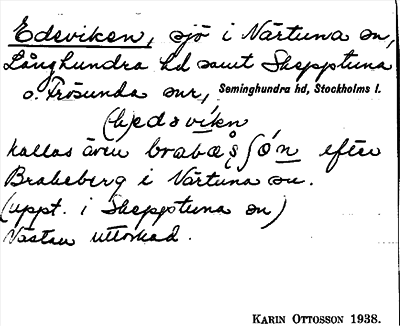 Edeviken, sjö i Närtuna sn,
Långhundra hd samt Skepptuna
o. Frösunda snr, Seminghundra hd, Stockholms l.
kallas även efter
Brakeberg i Närtuna sn.
(uppt. i Skepptuna sn)
Nästan uttorkad.
KARIN OTTOSSON 1938.